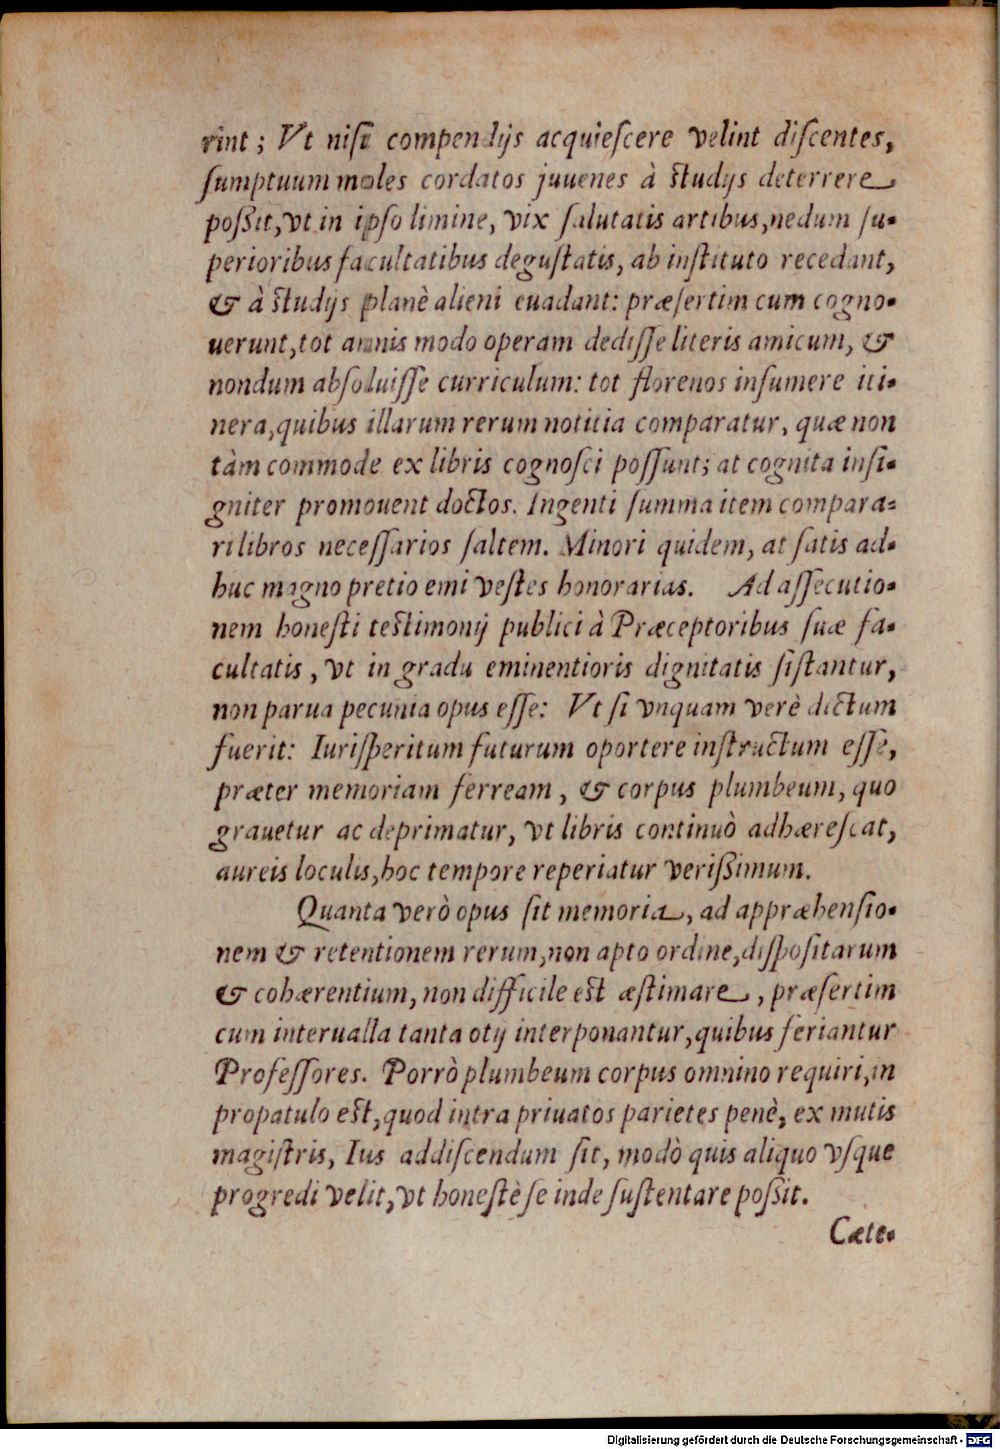 rint; Vt niſi compendijs acquieſcere velint diſcentes,
ſumptuum moles cordatos juuenes à ſtudijs deterrere
poßit, vt in ipſo limine, vix ſalutatis artibus, nedum ſu-
perioribus facultatibus deguſtatis, ab inſtituto recedant,
& à ſtudijs planè alieni euadant: præſertim cum cogno-
uerunt, tot annis modo operam dediſſe literis amicum, &
nondum abſoluiſſe curriculum: tot florenos inſumere iti-
nera, quibus illarum rerum notitia comparatur, quæ non
tàm commode ex libris cognoſci poſſunt; at cognita inſi-
gniter promouent doctos. Ingenti ſumma item compara-
ri libros neceſſarios ſaltem. Minori quidem, at ſatis ad-
huc magno pretio emi veſtes honorarias. Ad aſſecutio-
nem honeſti teſtimonij publici à Præceptoribus ſuæ fa-
cultatis, vt in gradu eminentioris dignitatis ſiſtantur,
non parua pecunia opus eſſe: Vt ſi vnquam verè dictum
fuerit: Iuriſperitum futurum oportere inſtructum eſſe,
præter memoriam ferream, & corpus plumbeum, quo
grauetur ac deprimatur, vt libris continuò adhæreſcat,
aureis loculis, hoc tempore reperiatur verißimum.
Quanta verò opus ſit memoria, ad appræhenſio-
nem & retentionem rerum, non apto ordine, diſpoſitarum
& cohærentium, non difficile eſt æſtimare, præſertim
cum interualla tanta otij interponantur, quibus feriantur
Profeſſores. Porrò plumbeum corpus omnino requiri, in
propatulo eſt, quod intra priuatos parietes penè, ex mutis
magiſtris, Ius addiſcendum ſit, modò quis aliquo vſque
progredi velit, vt honeſtè ſe inde ſuſtentare poßit.
Cæte-
Digitalisierung gefördert durch die Deutsche Forschungsgemeinschaft - DFG